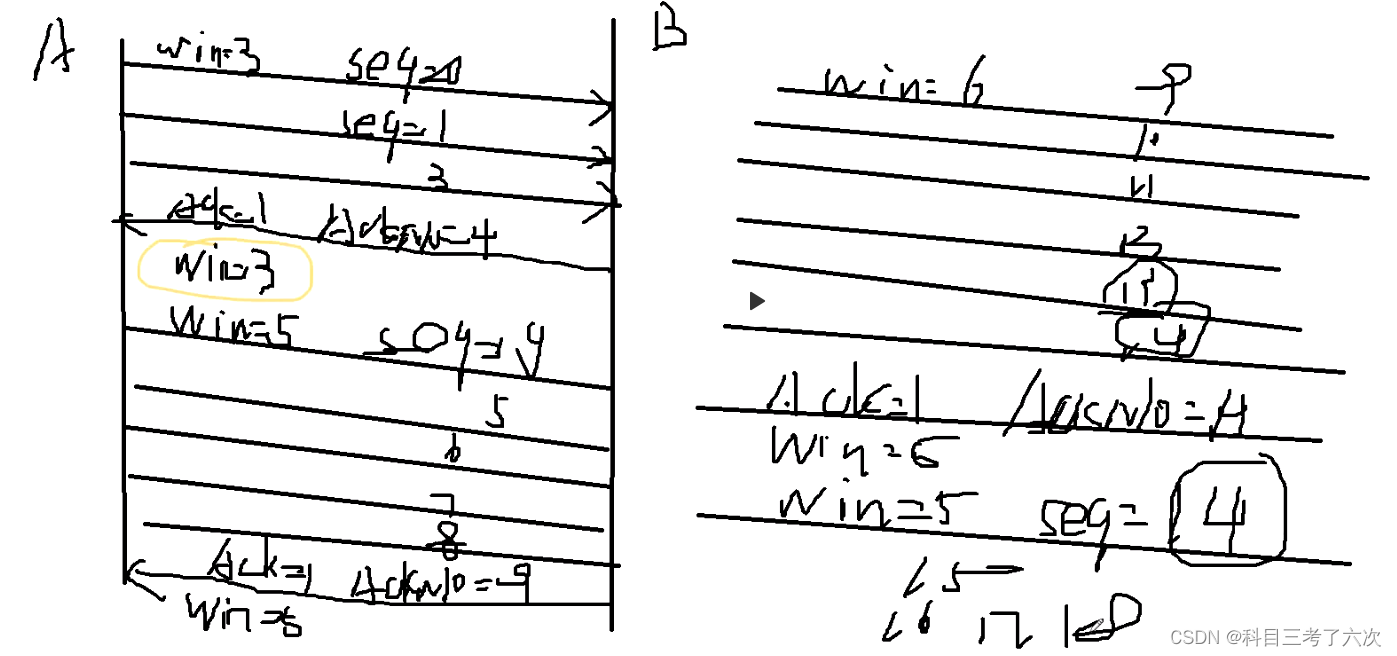 A
B
win=3 seq=0
seq=1
3
Ack=1 AckNo=4
win=3
Win=5 seq=4
5
6
7
8
Ack=1 AckNo=9
Win=6
win=6 9
10
11
12
13
14
Ack=1 AckNo=14
Win=5 seq=14
15
16 17 18
CSDN @科目三考了六次